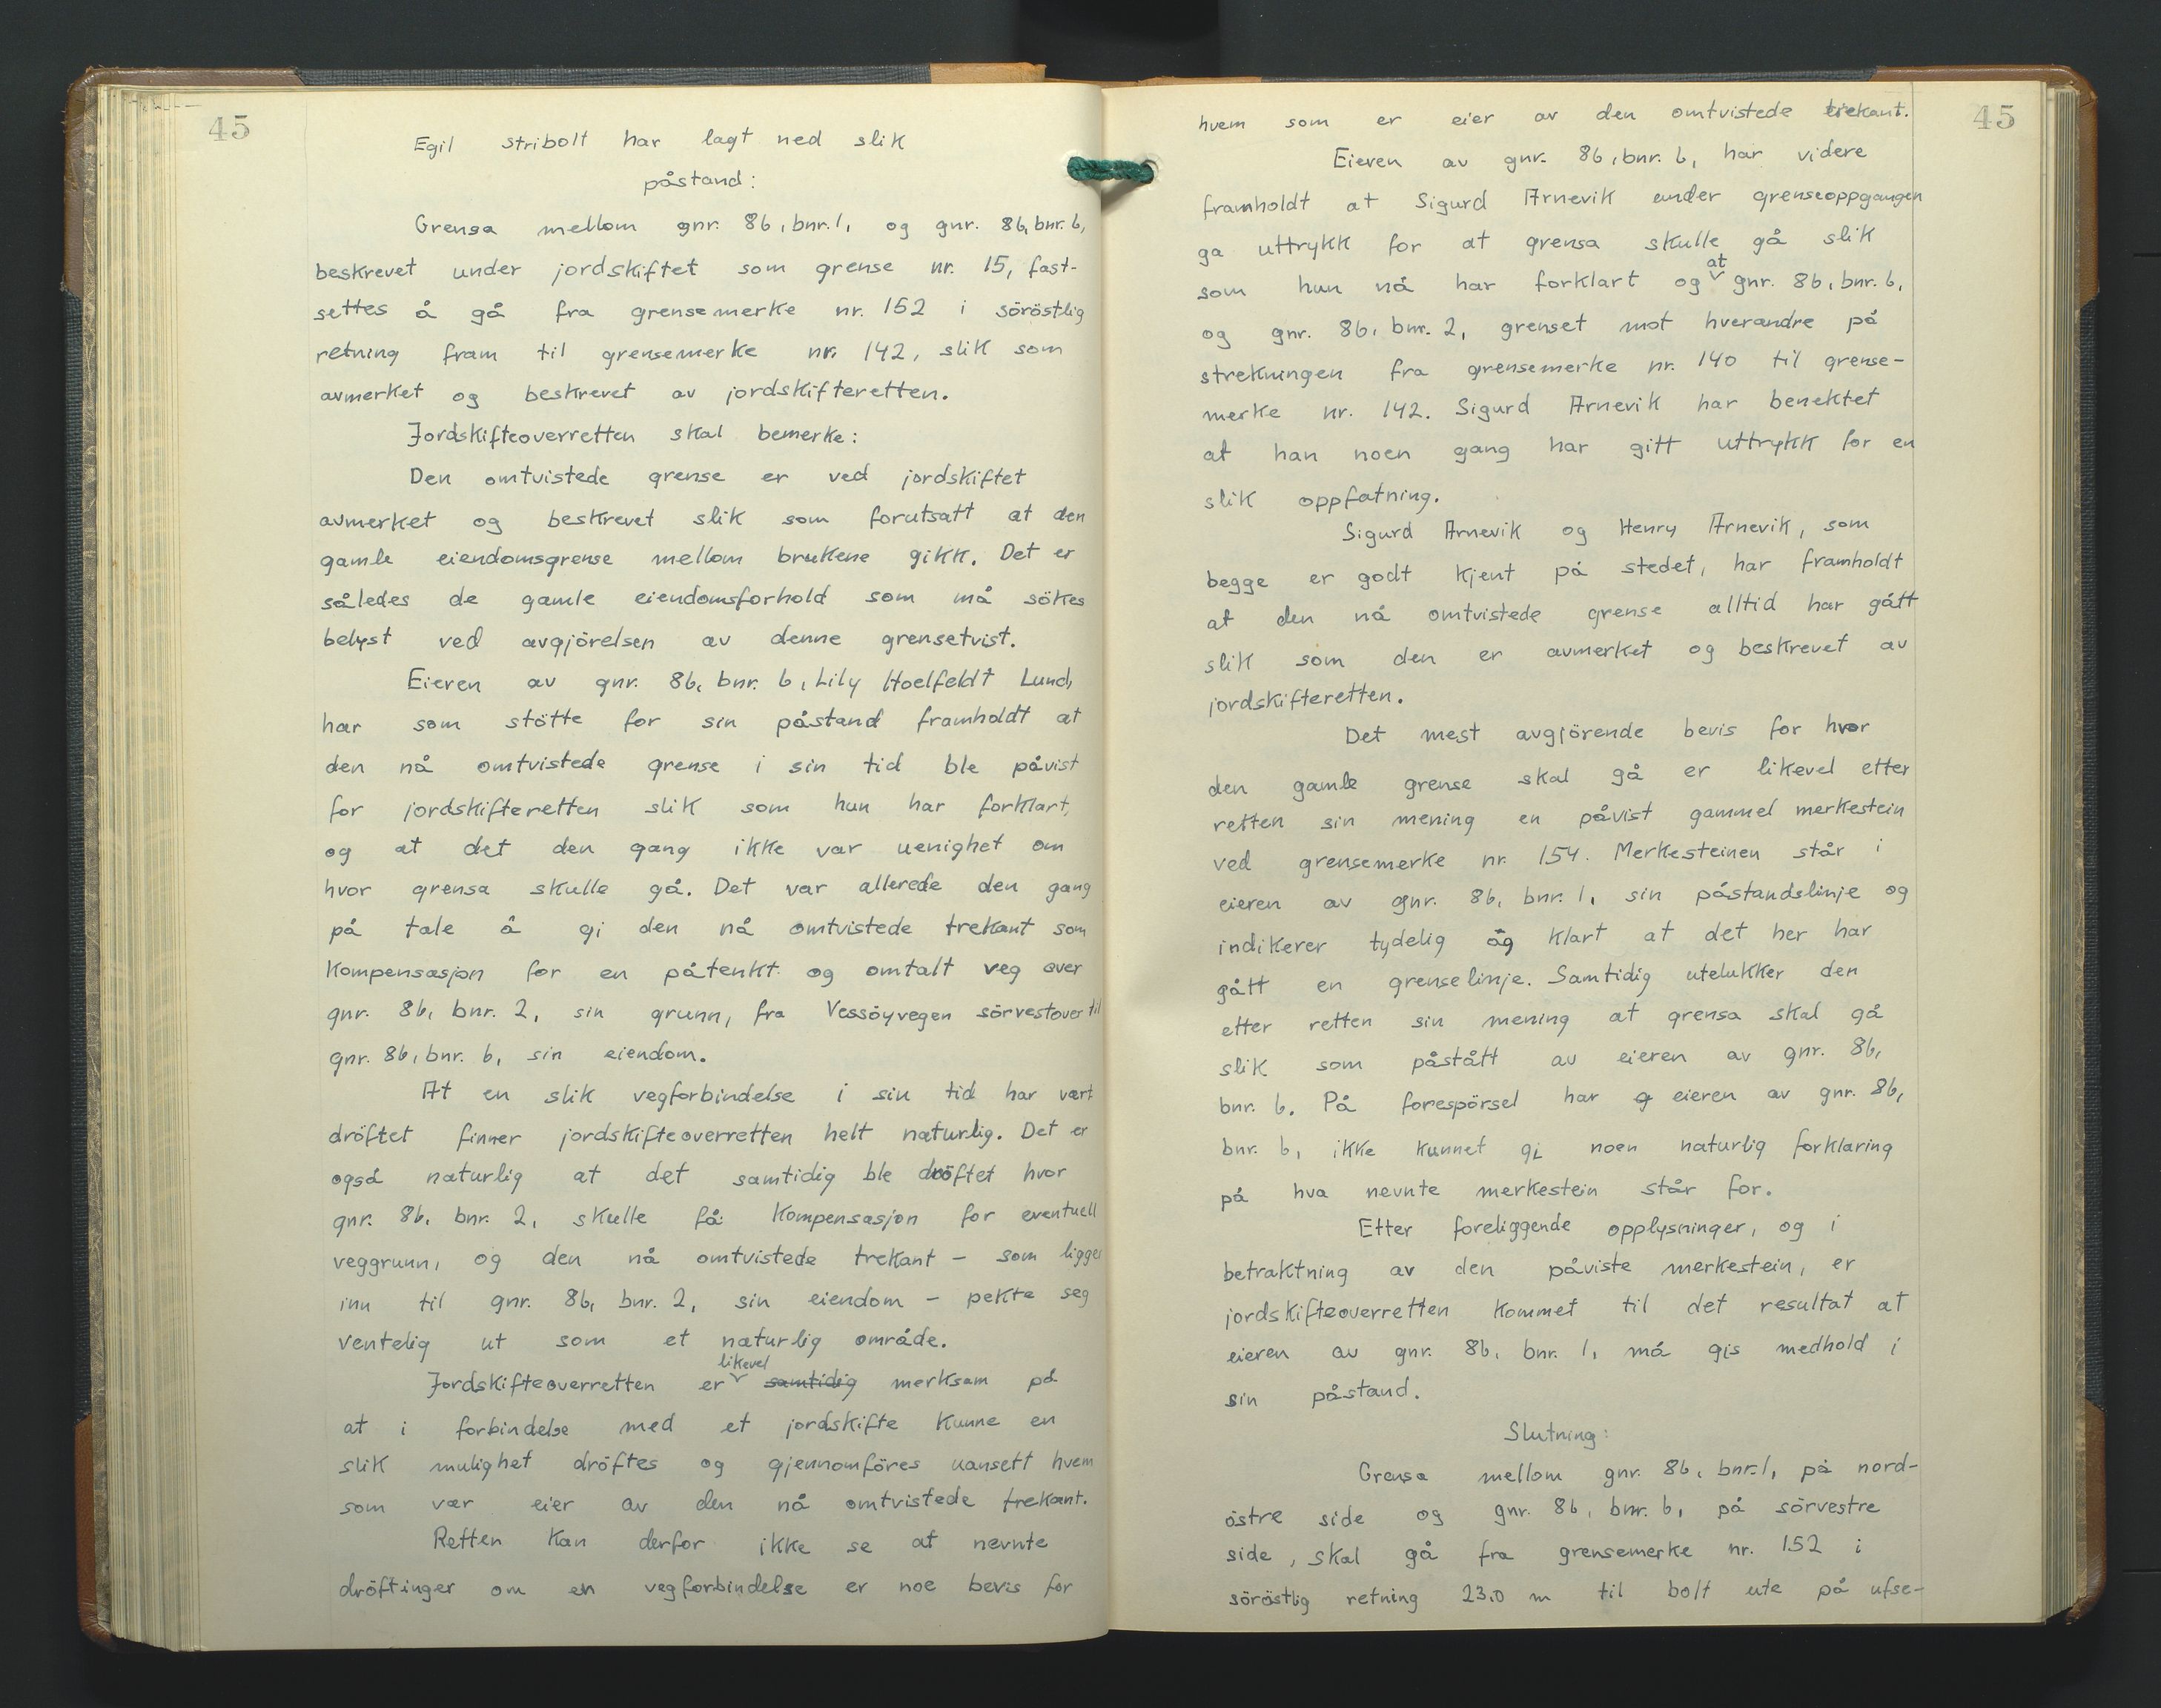 45
Egil Stribolt har lagt ned slik
påstand:
Grensa mellom gnr. 86, bnr. 1, og gnr. 86, bnr. 6,
beskrevet under jordskiftet som grense nr. 15, fast-
settes å gå fra grensemerke nr. 152 i söröstlig
retning fram til grensemerke nr. 142, slik som
avmerket og beskrevet av jordskifteretten.
Jordskifteoverretten skal bemerke:
Den omtvistede grense er ved jordskiftet
avmerket og beskrevet slik som forutsatt at den
gamle eiendomsgrense mellom brukene gikk. Det er
således de gamle eiendomsforhold som må sökes
belyst ved avgjörelsen av denne grensetvist.
Eieren av gnr. 86, bnr. 6, Lily Hoelfeldt Lund,
har som stötte for sin påstand framholdt at
den nå omtvistede grense i sin tid ble påvist
for jordskifteretten slik som hun har forklart,
og at det den gang ikke var uenighet om
hvor grensa skulle gå. Det var allerede den gang
på tale å gi den nå omtvistede trekant som
kompensasjon for en påtenkt og omtalt veg over
gnr. 86, bnr. 2, sin grunn, fra Vessöyvegen sörvestover til
gnr. 86, bnr. 6, sin eiendom.
At en slik vegforbindelse i sin tid har vært
dröftet finner jordskifteoverretten helt naturlig. Det er
også naturlig at det samtidig ble dröftet hvor
gnr. 86, bnr. 2, skulle få kompensasjon for eventuell
veggrunn, og den nå omtvistede trekant - som ligger
inn til gnr. 86, bnr. 2, sin eiendom - pekte seg
ventelig ut som et naturlig område.
likevel
Jordskifteoverretten er samtidig merksam på
at i forbindelse med et jordskifte kunne en
slik mulighet dröftes og gjennomföres uansett hvem
som var eier av den nå omtvistede trekant.
Retten kan derfor ikke se at nevnte
dröftinger om en vegforbindelse er noe bevis for
45
hvem som er eier av den omtvistede trekant.
Eieren av gnr. 86, bnr. 6, har videre
framholdt at Sigurd Arnevik under grenseoppgangen
ga uttrykk for at grensa skulle gå slik
at
som hun nå har forklart og gnr. 86, bnr. 6,
og gnr. 86, bnr. 2, grenset mot hverandre på
strekningen fra grensemerke nr. 140 til grense-
merke nr. 142. Sigurd Arnevik har benektet
at han noen gang har gitt uttrykk for en
slik oppfatning.
Sigurd Arnevik og Henry Arnevik, som
begge er godt kjent på stedet, har framholdt
at den nå omtvistede grense alltid har gått
slik som den er avmerket og beskrevet av
jordskifteretten.
Det mest avgjörende bevis for hvor
den gamle grense skal gå er likevel etter
retten sin mening en påvist gammel merkestein
ved grensemerke nr. 154. Merkesteinen står i
eieren av gnr. 86, bnr. 1, sin påstandslinje og
indikerer tydelig og klart at det her har
gått en grenselinje. Samtidig utelukker den
etter retten sin mening at grensa skal gå
slik som påstått av eieren av gnr. 86,
bnr. 6. På forespörsel har g eieren av gnr. 86,
bnr. 6, ikke kunnet gi noen naturlig forklaring
på hva nevnte merkestein står for.
Etter foreliggende opplysninger, og i
betraktning av den påviste merkestein, er
jordskifteoverretten kommet til det resultat at
eieren av gnr. 86, bnr. 1, må gis medhold i
sin påstand.
Slutning:
Grensa mellom gnr. 86, bnr. 1, på nord-
östre side og gnr. 86, bnr. 6, på sörvestre
side, skal gå fra grensemerke nr. 152 i
söröstlig retning 23,0 m til bolt ute på ufse-